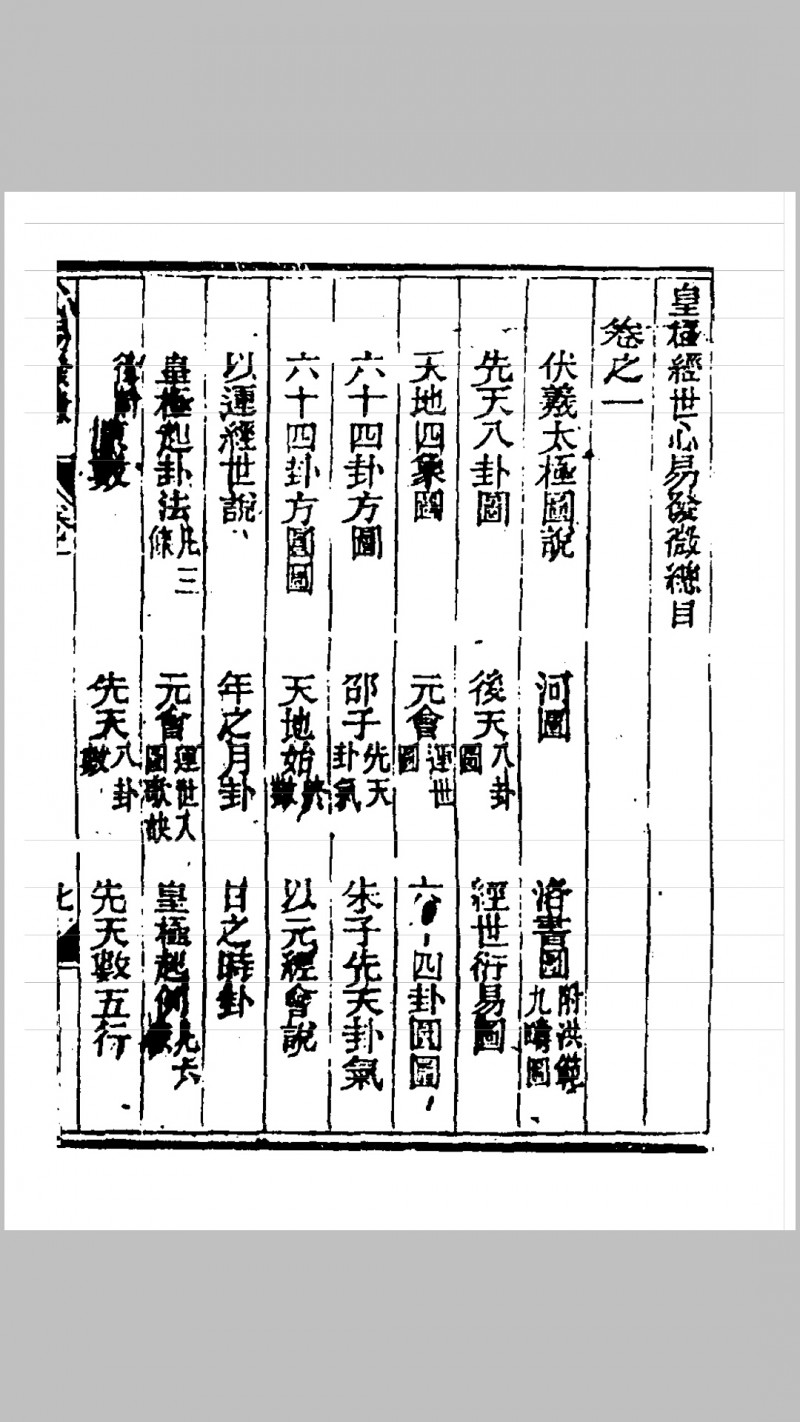 皇極經世心易發微總目
卷之一
伏羲太極圖說 河圖 洛書圖附洪範九疇圖
先天八卦圖 後天八卦圖 經世衍易圖
天地四象圖 元會運世圖 六十四卦圓圖
六十四卦方圖 邵子先天卦氣 朱子先天卦氣
六十四卦方圓圖 天地始終數 以元經會說
以運經世說 年之月卦 日之時卦
皇極起卦法凡三條 元會運世人圖歌訣 皇極起例凡六
數 先天八卦數 先天數五行